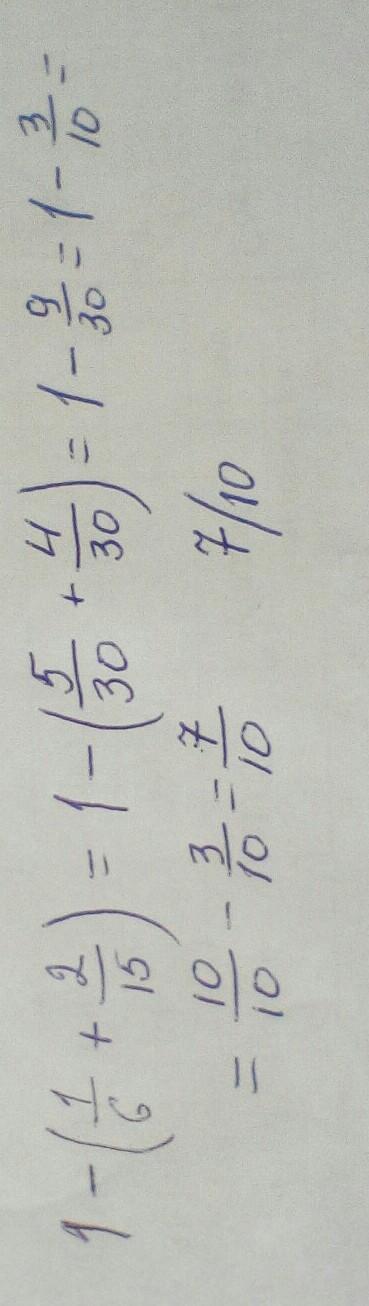 1 - (1/6 + 2/15) = 1 - (5/30 + 4/30) = 1 - 9/30 = 1 - 3/10 =
= 10/10 - 3/10 = 7/10 7/10